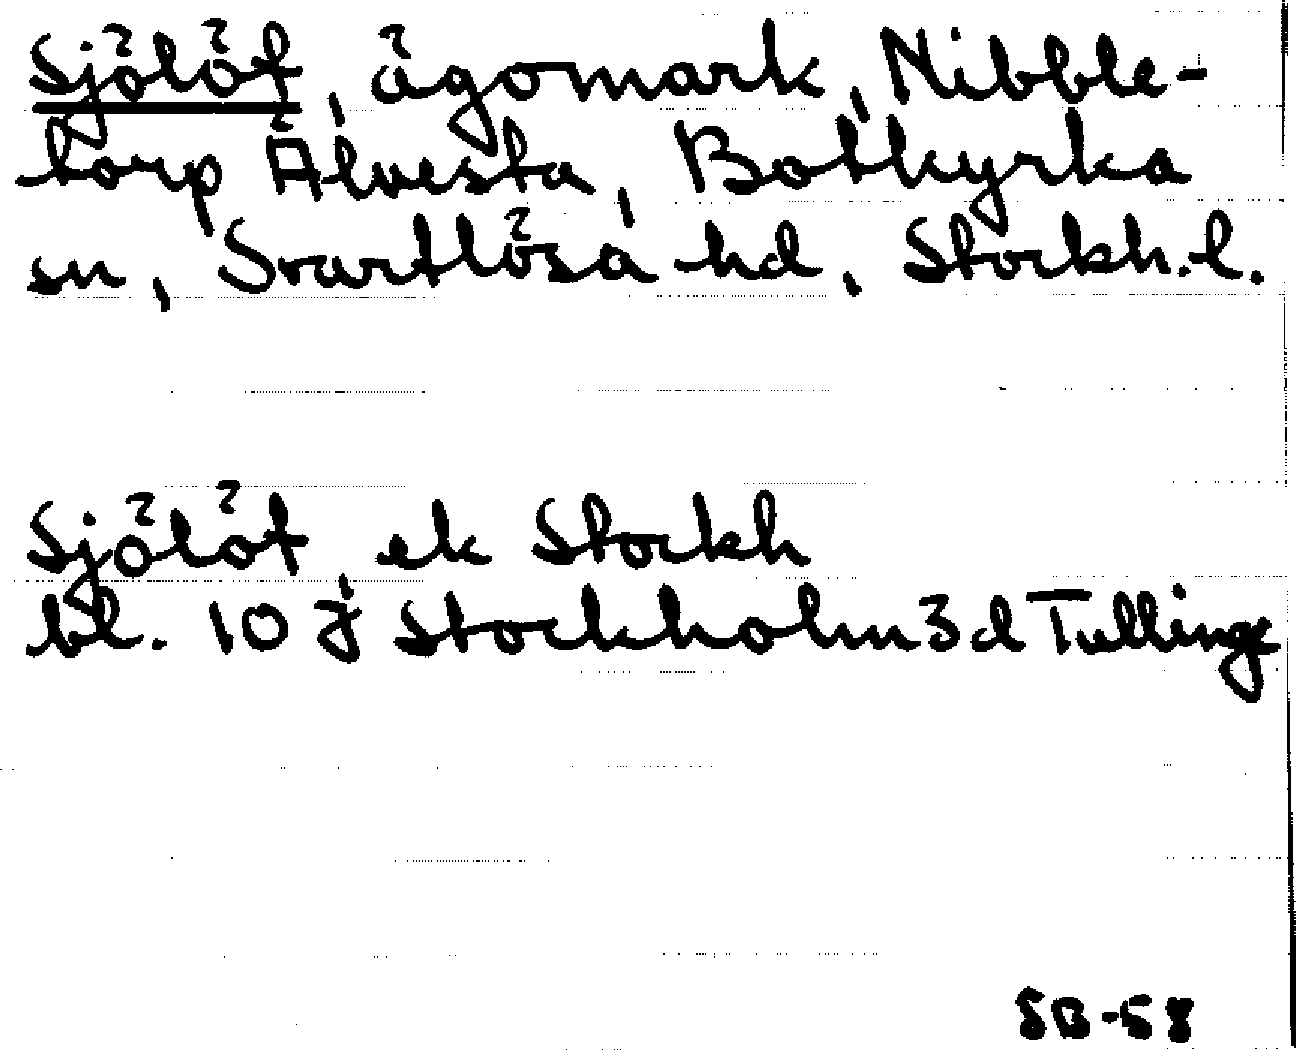 Sjölöt, ägomark, Nibble-
torp Älvesta, Botkyrka
sn, Svartlösa hd, Stockh.l.
Sjölöt, ek Stockh
bl. 10 J Stockholm 3 d Tullinge
SB-58